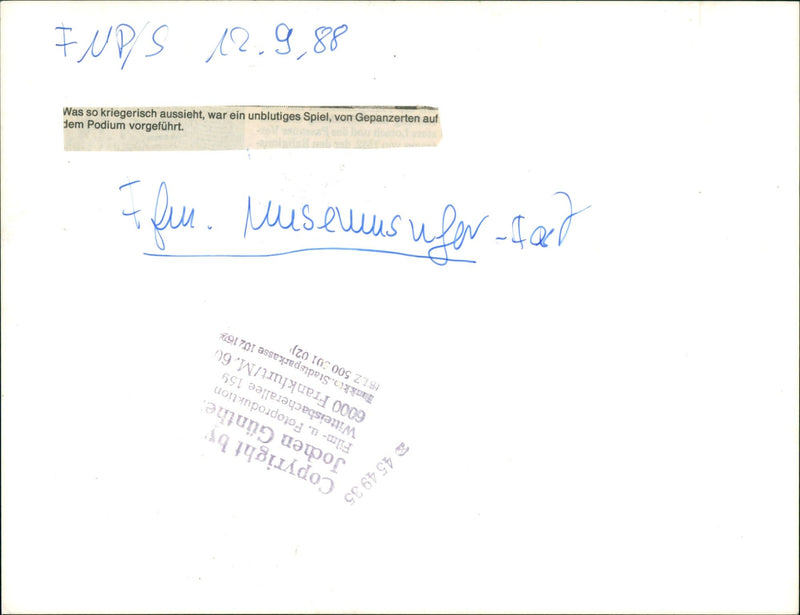 FNP/S 12.9.88
Was so kriegerisch aussieht, war ein unblutiges Spiel, von Gepanzerten auf
dem Podium vorgeführt.
Ffm. Museumsufer-Fest
Copyright by
Jochen Günther
Film- u. Fotoproduktion
Wittelsbacherallee 159
6000 Frankfurt/M. 60
Stadtsparkasse
(BLZ 500 501 02)
☎ 454935